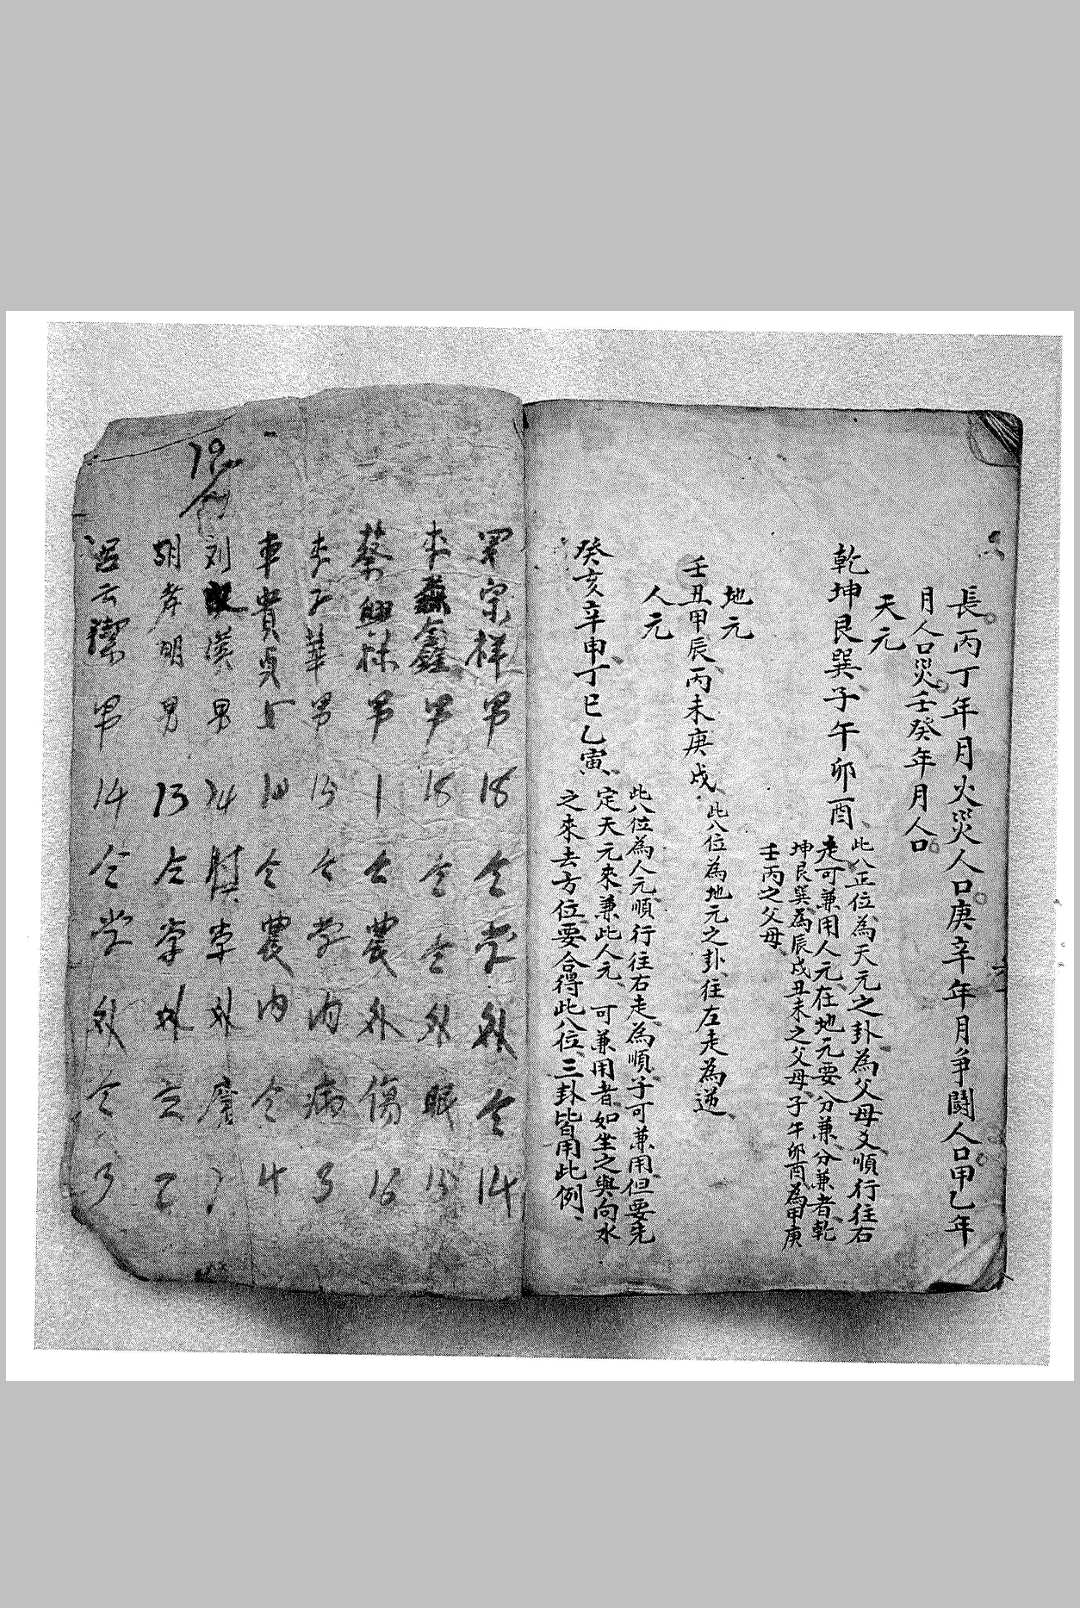 長丙丁年月火災人口庚辛年月爭鬪人口甲乙年
月人口災壬癸年月人口
天元
乾坤艮巽子午卯酉
此八正位為天元之卦為父母爻順行往右
走可兼用人元在地元要分兼分兼者乾
坤艮巽為辰戌丑未之父母子午卯酉為甲庚
壬丙之父母
地元
壬丑甲辰丙未庚戌此八位為地元之卦往左走為逆
人元
癸亥辛申丁巳乙寅
此八位為人元順行往右走為順子可兼用但要先
定天元來兼此人元可兼用者如坐之與向水
之來去方位要合得此八位三卦皆用此例
宗祥男18仝仝14
鑫男18仝仝外眠15
蔡男1仝農外傷16
華男15仝学内病3
車貴貞10仝農内仝4
刘漢男24外
胡孝明男13仝学外2
呂云潔男14仝学外仝3